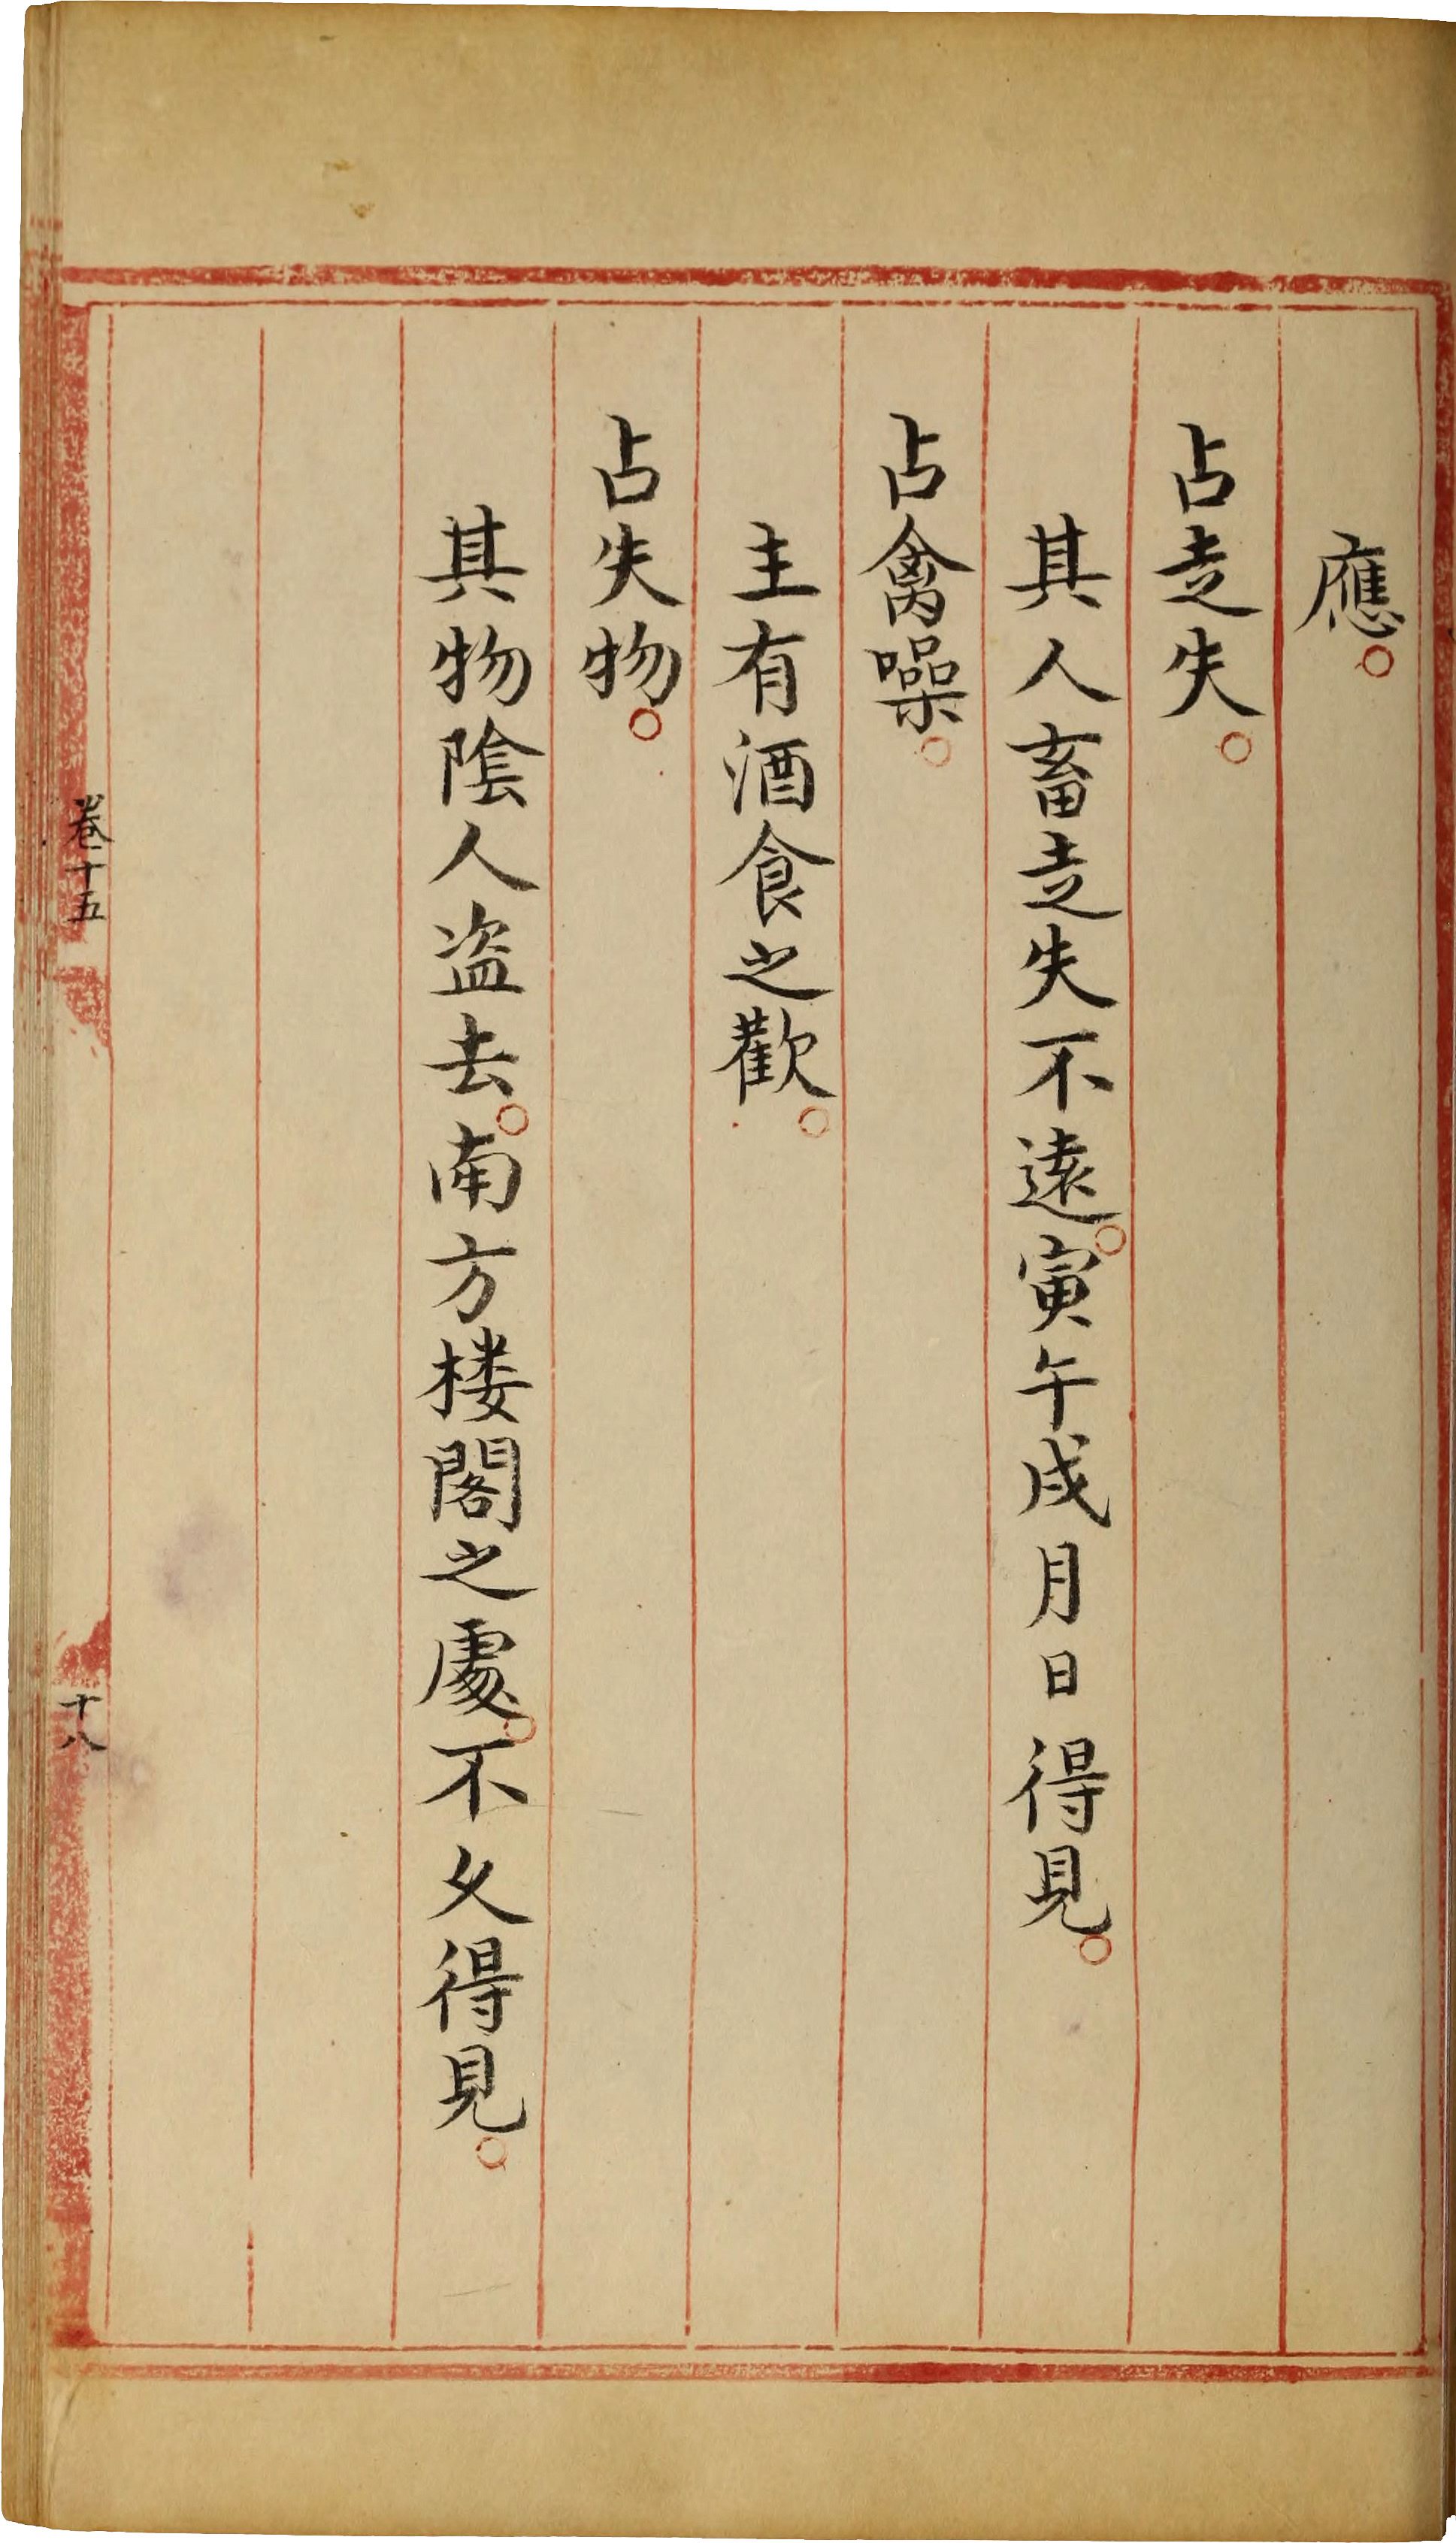 應。
占走失。
其人畜走失不遠。寅午戌月日得見。
占禽噪。
主有酒食之歡。
占失物。
其物陰人盗去。南方楼閣之處。不久得見。
卷十五
十八